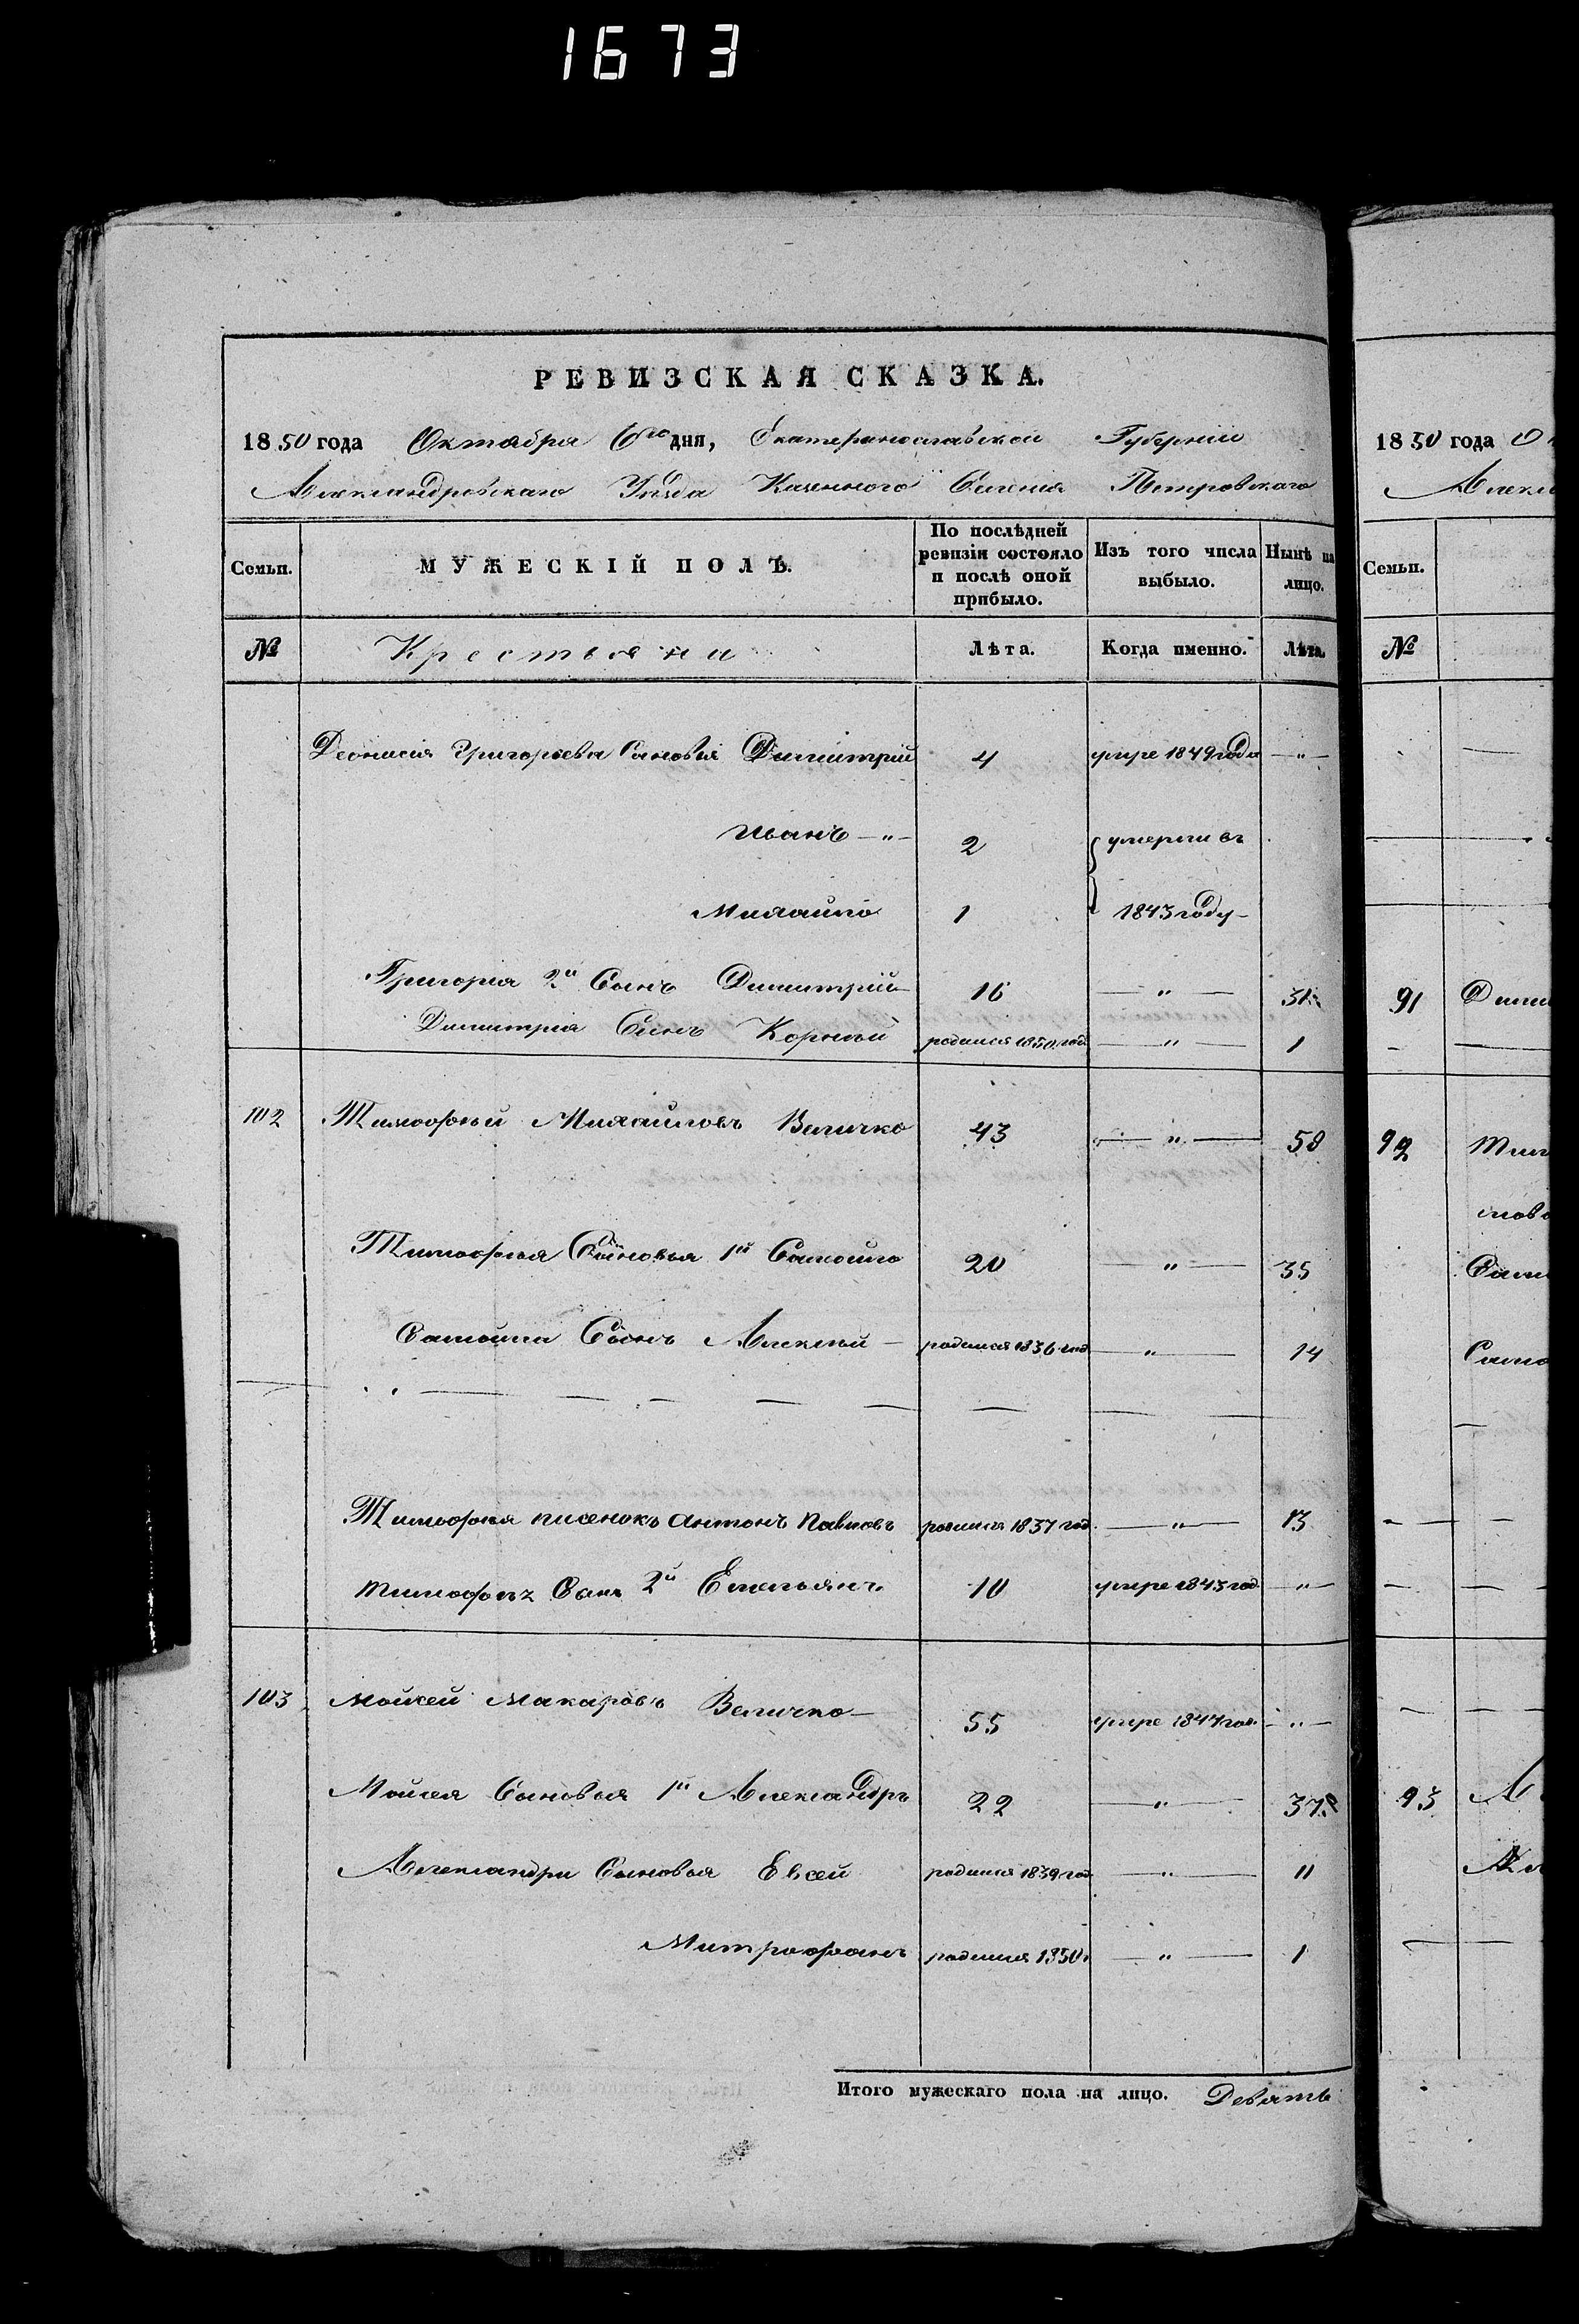 1673
РЕВИЗСКАЯ СКАЗКА.
1850 года Октября 6го дня, Екатеринославской Губернии
Александровскаго Уезда Казенного Селения Петровскаго
Семьи.
МУЖЕСКІЙ ПОЛЪ.
По послѣдней ревизіи состояло и послѣ оной прибыло.
Изъ того числа выбыло.
Нынѣ на лицо.
№ Крестьяни Лѣта. Когда именно. Лѣта.
Деонисія Григорьева Сыновья Димитрий 4 умре 1849 года — " —
Иванъ — " — 2 умерли въ
Михайло 1 1843 году —
Григория 2й Сынъ Димитрий 16 — " — 31
Димитрия Сынъ Корней родился 1850 год — " — 1
102 Тимофей Михайловъ Величко 43 — " — 58
Тимофея Сыновья 1й Самойло 20 — " — 35
Самойла Сынъ Алексей — родился 1836 год — " — 14
Тимофея писенокъ Антонъ Павловъ родился 1837 год — " — 13
Тимофея Сынъ 2й Емельянъ 10 умре 1843 год — " —
103 Мойсей Макаровъ Величко — 55 умре 1844 год. — " —
Мойсея Сыновья 1й Александръ 22 — " — 37
Александра Сыновья Евсей родился 1839 год — " — 11
Митрофанъ родился 1850 — " — 1
Итого мужескаго пола на лицо. Девять
1850 года О
Алекс
Семьи.
№
91 Дими
92 Тим
лова
Сам
Само
93 А